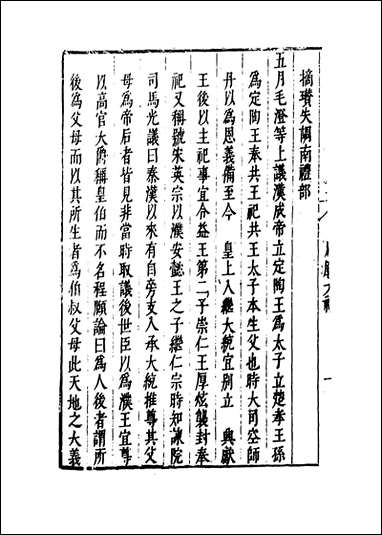 摘瓚失調南禮部
五月毛澄等上議漢成帝立定陶王為太子立楚孝王孫
為定陶王奉共王祀共王太子本生父也時大司空師
丹以為恩義備至今　皇上入繼大統宜別立　興獻
王後以主祀事宜令益王第二子崇仁王厚炫襲封奉
祀又稱號朱英宗以濮安懿王之子繼仁宗時知諫院
司馬光議曰秦漢以來有自旁支入承大統推尊其父
母為帝后者皆見非當時取議後世臣以為濮王宜尊
以高官大爵稱皇伯而不名程頤論曰為人後者謂所
後為父母而以其所生者為伯叔父母此天地之大義
一